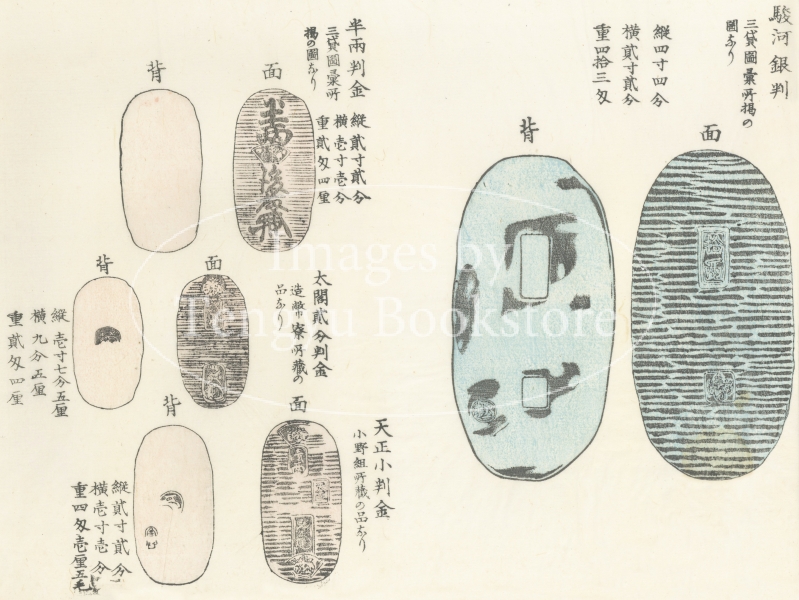 駿河銀判
三貨圖彙所掲の
圖なり
縦四寸四分
横貳寸貳分
重四拾三匁
面
背
半兩判金
三貨圖彙所
掲の圖なり
縦貳寸貳分
横壱寸壱分
重貳匁四厘
面
背
太閤貳分判金
造幣寮所蔵の
品なり
面
背
縦壱寸七分五厘
横九分五厘
重貳匁四厘
天正小判金
小野組所蔵の品なり
面
背
縦貳寸貳分
横壱寸壱分
重四匁壱厘五毛
Images by
Tengyu Bookstore